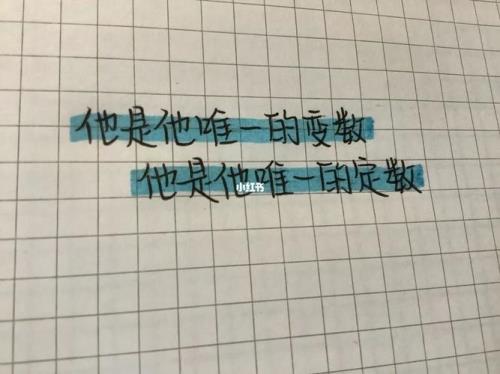 他是他唯一的变数
他是他唯一的定数
小红书